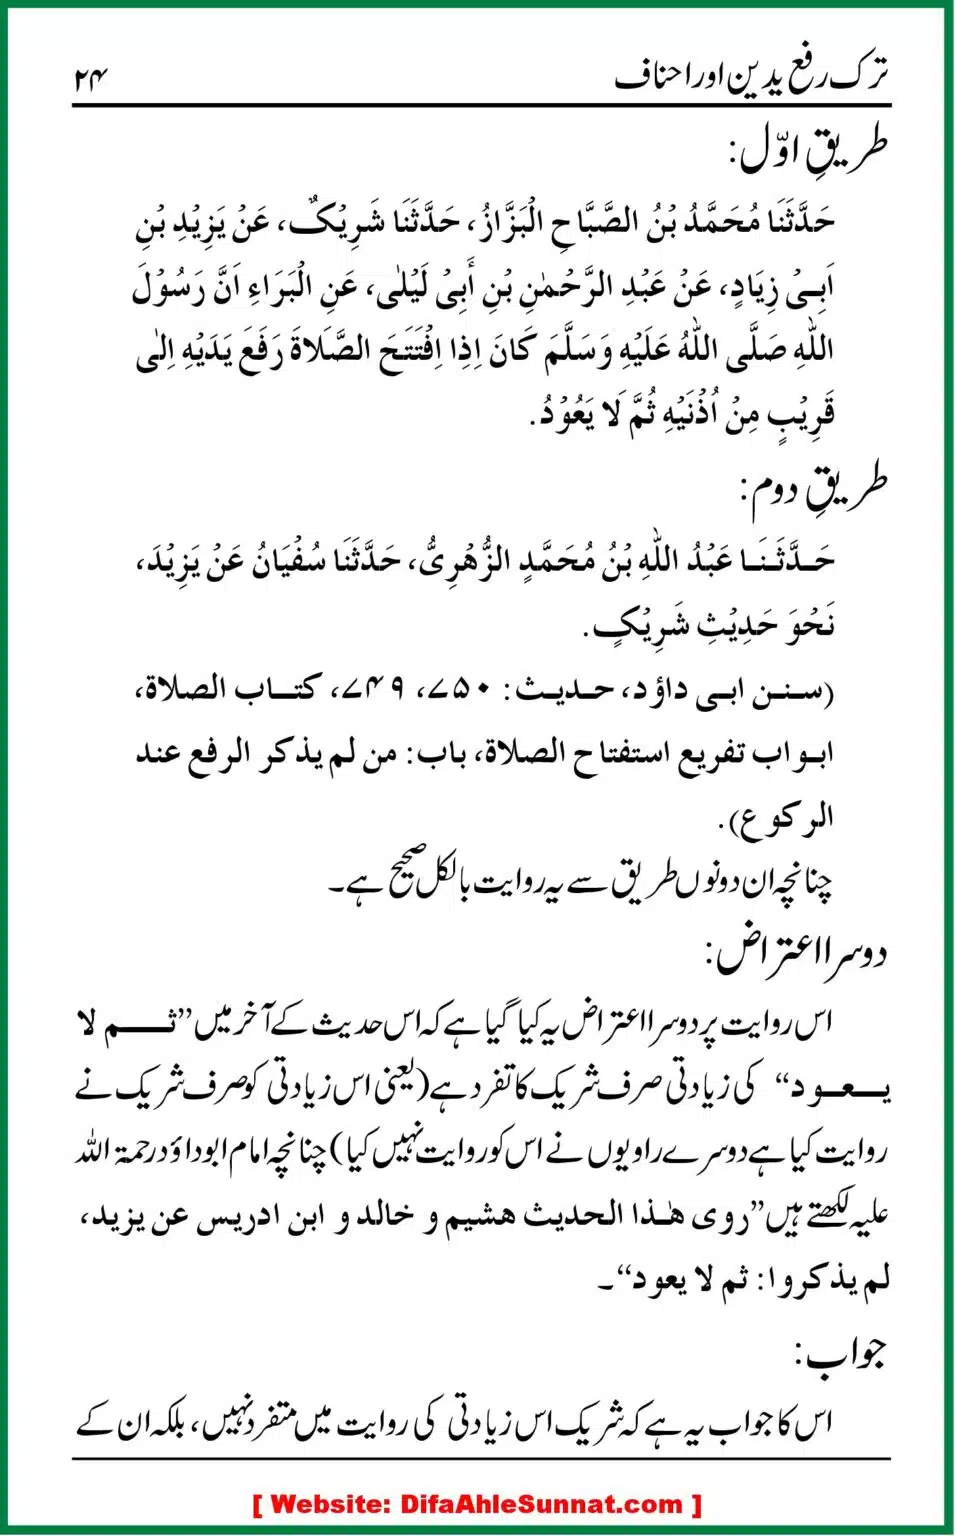 ترک رفع یدین اور احناف ۲۴
طریقِ اوّل:
حَدَّثَنَا مُحَمَّدُ بْنُ الصَّبَّاحِ الْبَزَّازُ، حَدَّثَنَا شَرِیْکٌ، عَنْ یَزِیْدِ بْنِ
اَبِیْ زِیَادٍ، عَنْ عَبْدِ الرَّحْمٰنِ بْنِ أَبِیْ لَیْلٰی، عَنِ الْبَرَاءِ اَنَّ رَسُوْلَ
اللّٰهِ صَلَّی اللّٰهُ عَلَیْهِ وَسَلَّمَ کَانَ اِذَا اِفْتَتَحَ الصَّلَاةَ رَفَعَ یَدَیْهِ اِلٰی
قَرِیْبٍ مِنْ اُذْنَیْهِ ثُمَّ لَا یَعُوْدُ.
طریقِ دوم:
حَدَّثَنَا عَبْدُ اللّٰهِ بْنُ مُحَمَّدٍ الزُّهْرِیُّ، حَدَّثَنَا سُفْیَانُ عَنْ یَزِیْدَ،
نَحْوَ حَدِیْثِ شَرِیْکٍ.
(سنن ابی داؤد، حدیث: ۷۵۰، ۷۴۹، کتاب الصلاة،
ابواب تفریع استفتاح الصلاة، باب: من لم یذکر الرفع عند
الرکوع).
چنانچہ ان دونوں طریق سے یہ روایت بالکل صحیح ہے۔
دوسرا اعتراض:
اس روایت پر دوسرا اعتراض یہ کیا گیا ہے کہ اس حدیث کے آخر میں ”ثم لا
یعود“ کی زیادتی صرف شریک کا تفرد ہے (یعنی اس زیادتی کو صرف شریک نے
روایت کیا ہے دوسرے راویوں نے اس کو روایت نہیں کیا) چنانچہ امام ابوداؤد رحمۃ اللہ
علیہ لکھتے ہیں ”روی هٰذا الحدیث هشیم و خالد و ابن ادریس عن یزید،
لم یذکروا: ثم لا یعود“۔
جواب:
اس کا جواب یہ ہے کہ شریک اس زیادتی کی روایت میں متفرد نہیں، بلکہ ان کے
[ Website: DifaAhleSunnat.com ]